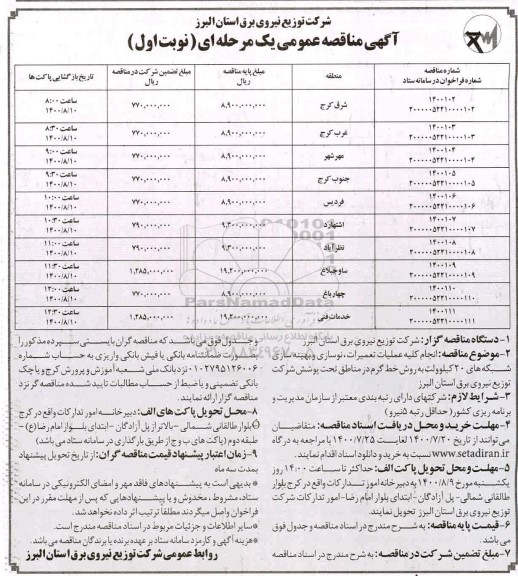 شرکت توزیع نیروی برق استان البرز
آگهی مناقصه عمومی یک مرحله ای (نوبت اول)
شماره مناقصه
شماره فراخوان در سامانه ستاد
منطقه
مبلغ پایه مناقصه
ریال
مبلغ تضمین شرکت در مناقصه
ریال
تاریخ بازگشایی پاکت ها
۱۴۰۰۱۰۲
۲۰۰۰۰۰۵۲۲۱۰۰۰۱۰۲
شرق کرج
۸,۹۰۰,۰۰۰,۰۰۰
۷۷۰,۰۰۰,۰۰۰
ساعت ۸:۰۰
۱۴۰۰/۸/۱۰
۱۴۰۰۱۰۳
۲۰۰۰۰۰۵۲۲۱۰۰۰۱۰۳
غرب کرج
۸,۹۰۰,۰۰۰,۰۰۰
۷۷۰,۰۰۰,۰۰۰
ساعت ۸:۳۰
۱۴۰۰/۸/۱۰
۱۴۰۰۱۰۴
۲۰۰۰۰۰۵۲۲۱۰۰۰۱۰۴
مهرشهر
۸,۹۰۰,۰۰۰,۰۰۰
۷۷۰,۰۰۰,۰۰۰
ساعت ۹:۰۰
۱۴۰۰/۸/۱۰
۱۴۰۰۱۰۵
۲۰۰۰۰۰۵۲۲۱۰۰۰۱۰۵
جنوب کرج
۸,۹۰۰,۰۰۰,۰۰۰
۷۷۰,۰۰۰,۰۰۰
ساعت ۹:۳۰
۱۴۰۰/۸/۱۰
۱۴۰۰۱۰۶
۲۰۰۰۰۰۵۲۲۱۰۰۰۱۰۶
فردیس
۸,۹۰۰,۰۰۰,۰۰۰
۷۷۰,۰۰۰,۰۰۰
ساعت ۱۰:۰۰
۱۴۰۰/۸/۱۰
۱۴۰۰۱۰۷
۲۰۰۰۰۰۵۲۲۱۰۰۰۱۰۷
اشتهارد
۹,۳۰۰,۰۰۰,۰۰۰
۷۹۰,۰۰۰,۰۰۰
ساعت ۱۰:۳۰
۱۴۰۰/۸/۱۰
۱۴۰۰۱۰۸
۲۰۰۰۰۰۵۲۲۱۰۰۰۱۰۸
نظرآباد
۹,۳۰۰,۰۰۰,۰۰۰
۷۹۰,۰۰۰,۰۰۰
ساعت ۱۱:۰۰
۱۴۰۰/۸/۱۰
۱۴۰۰۱۰۹
۲۰۰۰۰۰۵۲۲۱۰۰۰۱۰۹
ساوجبلاغ
۱۹,۲۰۰,۰۰۰,۰۰۰
۱,۲۸۵,۰۰۰,۰۰۰
ساعت ۱۱:۳۰
۱۴۰۰/۸/۱۰
۱۴۰۰۱۱۰
۲۰۰۰۰۰۵۲۲۱۰۰۰۱۱۰
چهارباغ
۸,۹۰۰,۰۰۰,۰۰۰
۷۷۰,۰۰۰,۰۰۰
ساعت ۱۲:۰۰
۱۴۰۰/۸/۱۰
۱۴۰۰۱۱۱
۲۰۰۰۰۰۵۲۲۱۰۰۰۱۱۱
خدمات فنی
۱۹,۲۰۰,۰۰۰,۰۰۰
۱,۲۸۵,۰۰۰,۰۰۰
ساعت ۱۲:۳۰
۱۴۰۰/۸/۱۰
ParsNamadData
۱- دستگاه مناقصه گزار: شرکت توزیع نیروی برق استان البرز
۲- موضوع مناقصه: انجام کلیه عملیات تعمیرات، نوسازی و بهینه سازی
شبکه های ۲۰ کیلوولت به روش خط گرم در مناطق تحت پوشش شرکت
توزیع نیروی برق استان البرز
۳- شرایط لازم: شرکتهای دارای رتبه بندی معتبر از سازمان مدیریت و
برنامه ریزی کشور (حداقل رتبه ۵ نیرو)
۴- مهلت خرید و محل دریافت اسناد مناقصه: متقاضیان
می توانند از تاریخ ۱۴۰۰/۷/۲۰ لغایت ۱۴۰۰/۷/۲۵ با مراجعه به درگاه
www.setadiran.ir نسبت به خرید و دانلود اسناد اقدام نمایند.
۵- مهلت و محل تحویل پاکت الف: حداکثر تا ساعت ۱۴:۰۰ روز
یکشنبه مورخ ۱۴۰۰/۸/۹ به دبیرخانه امور تدارکات واقع در کرج بلوار
طالقانی شمالی - پل آزادگان - ابتدای بلوار امام رضا - امور تدارکات شرکت
توزیع نیروی برق استان البرز تحویل نمایند.
۶- قیمت پایه مناقصه: به شرح مندرج در اسناد مناقصه و جدول فوق
می باشد.
۷- مبلغ تضمین شرکت در مناقصه: به شرح مندرج در اسناد مناقصه
و جدول فوق می باشد که مناقصه گران بایستی سپرده مذکور را
بصورت ضمانتنامه بانکی یا فیش بانکی واریزی به حساب شماره
۰۱۰۲۷۹۵۱۲۶۰۰۶ نزد بانک ملی شعبه آموزش و پرورش کرج و یا چک
بانکی تضمینی و یا ضبط از حساب مطالبات تایید شده مناقصه گر نزد
مناقصه گزار ارائه نمایند.
۸- محل تحویل پاکت های الف: دبیرخانه امور تدارکات واقع در کرج
بلوار طالقانی شمالی - بالاتر از پل آزادگان - ابتدای بلوار امام رضا(ع) -
طبقه دوم (پاکت های ب و ج از طریق بارگذاری در سامانه ستاد می باشد)
۹- زمان اعتبار پیشنهاد قیمت مناقصه گران: از تاریخ تحویل پیشنهاد
بمدت سه ماه
* بدیهی است به پیشنهادهای فاقد مهر و امضای الکترونیکی در سامانه
ستاد، مشروط، مخدوش و یا پیشنهادهایی که پس از مهلت مقرر در این
فراخوان واصل میگردند مطلقا ترتیب اثر داده نخواهد شد.
* سایر اطلاعات و جزئیات مربوط در اسناد مناقصه مندرج است.
* هزینه آگهی و کارمزد سامانه ستاد بر عهده برنده یا برندگان مناقصه می باشد.
روابط عمومی شرکت توزیع نیروی برق استان البرز